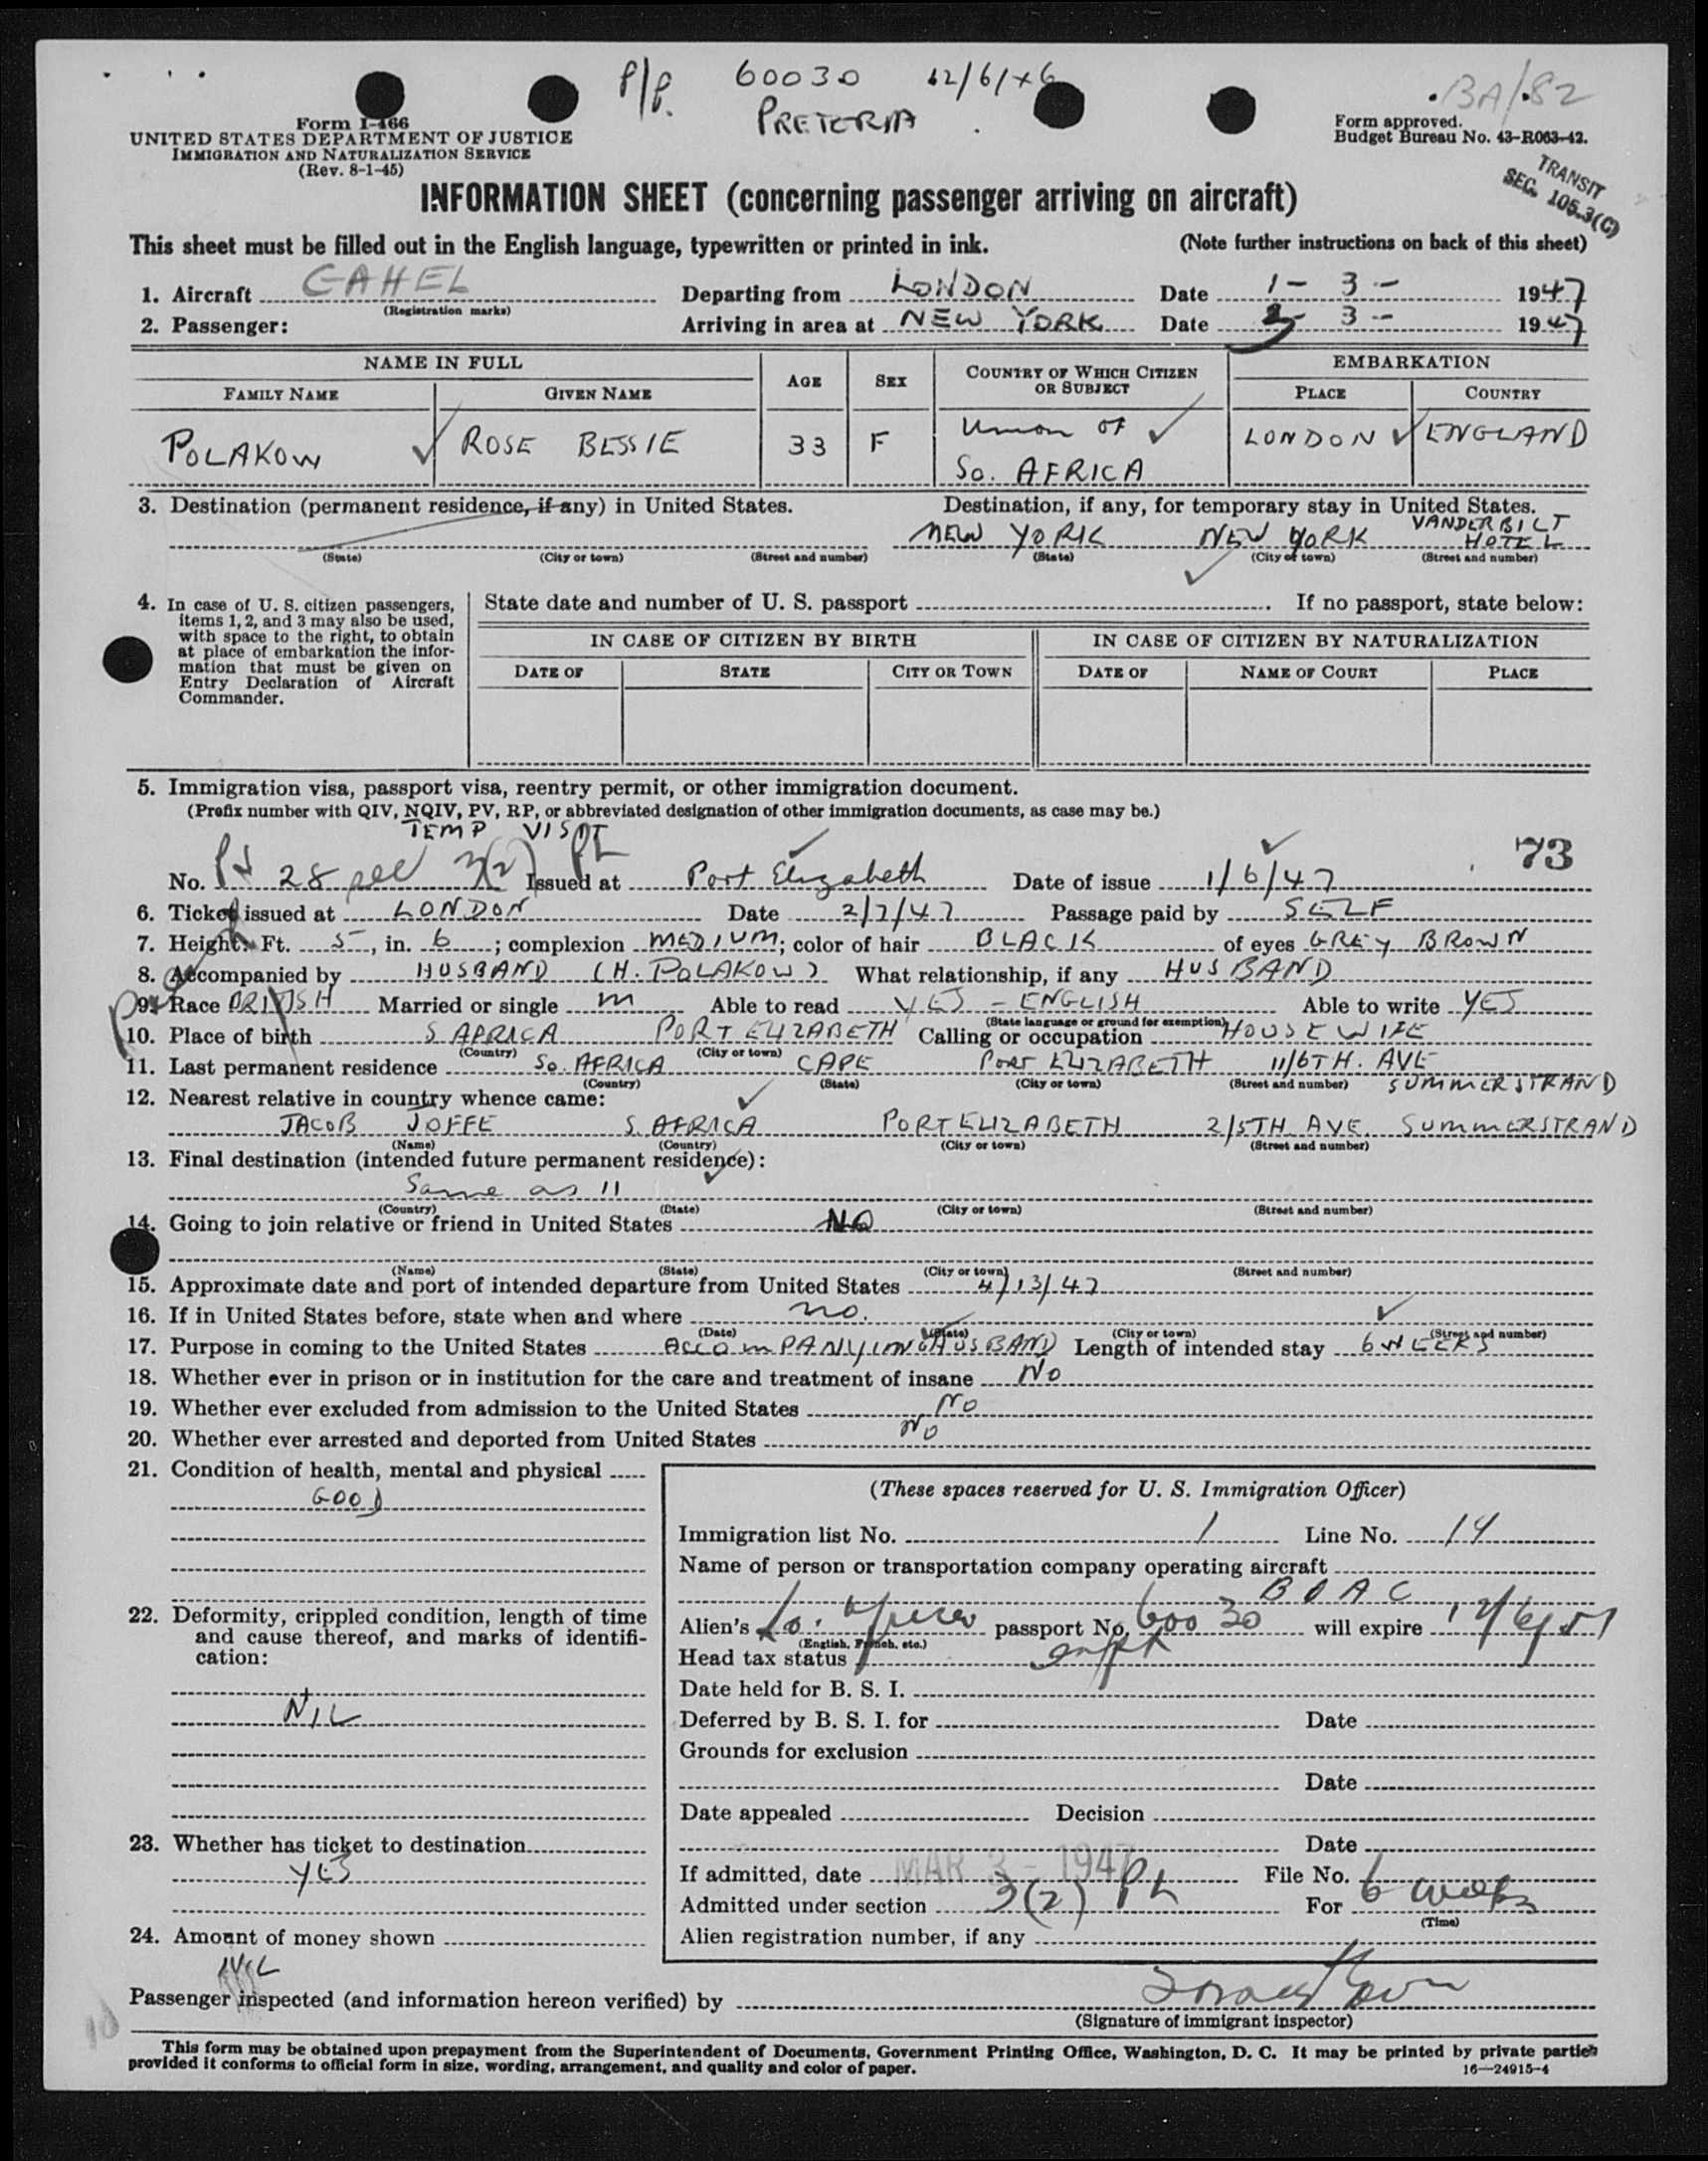 P/P. 60030 12/6/46
PRETORIA
BA/82
Form I-466
UNITED STATES DEPARTMENT OF JUSTICE
IMMIGRATION AND NATURALIZATION SERVICE
(Rev. 8-1-45)
Form approved.
Budget Bureau No. 43-R063-42.
TRANSIT
SEC. 105.3(C)
INFORMATION SHEET (concerning passenger arriving on aircraft)
This sheet must be filled out in the English language, typewritten or printed in ink. (Note further instructions on back of this sheet)
1. Aircraft GAHEL Departing from LONDON Date 1 - 3 - 1947
(Registration marks)
2. Passenger: Arriving in area at NEW YORK Date 3 - 3 - 1947
NAME IN FULL AGE SEX COUNTRY OF WHICH CITIZEN OR SUBJECT EMBARKATION
FAMILY NAME GIVEN NAME PLACE COUNTRY
POLAKOW ROSE BESSIE 33 F Union of So. AFRICA LONDON ENGLAND
3. Destination (permanent residence, if any) in United States. Destination, if any, for temporary stay in United States.
NEW YORK NEW YORK VANDERBILT HOTEL
(State) (City or town) (Street and number) (State) (City or town) (Street and number)
4. In case of U. S. citizen passengers, items 1, 2, and 3 may also be used, with space to the right, to obtain at place of embarkation the information that must be given on Entry Declaration of Aircraft Commander.
State date and number of U. S. passport . If no passport, state below:
IN CASE OF CITIZEN BY BIRTH IN CASE OF CITIZEN BY NATURALIZATION
DATE OF STATE CITY OR TOWN DATE OF NAME OF COURT PLACE
5. Immigration visa, passport visa, reentry permit, or other immigration document.
(Prefix number with QIV, NQIV, PV, RP, or abbreviated designation of other immigration documents, as case may be.)
TEMP VISIT
73
No. 28 3(2) Issued at Port Elizabeth Date of issue 1/6/47
6. Ticket issued at LONDON Date 2/7/47 Passage paid by SELF
7. Height: Ft. 5, in. 6; complexion MEDIUM; color of hair BLACK of eyes GREY BROWN
8. Accompanied by HUSBAND (H. POLAKOW) What relationship, if any HUSBAND
9. Race BRITISH Married or single M Able to read YES - ENGLISH Able to write YES
(State language or ground for exemption)
10. Place of birth S AFRICA PORT ELIZABETH Calling or occupation HOUSEWIFE
(Country) (City or town)
11. Last permanent residence So. AFRICA CAPE PORT ELIZABETH 11/6TH. AVE SUMMERSTRAND
(Country) (State) (City or town) (Street and number)
12. Nearest relative in country whence came:
JACOB JOFFE S. AFRICA PORT ELIZABETH 2/5TH AVE. SUMMERSTRAND
(Name) (Country) (City or town) (Street and number)
13. Final destination (intended future permanent residence):
Same as 11
(Country) (State) (City or town) (Street and number)
14. Going to join relative or friend in United States NO
(Name) (State) (City or town) (Street and number)
15. Approximate date and port of intended departure from United States 4/13/47
16. If in United States before, state when and where no.
(Date) (State) (City or town) (Street and number)
17. Purpose in coming to the United States ACCOMPANYING HUSBAND Length of intended stay 6 WEEKS
18. Whether ever in prison or in institution for the care and treatment of insane No
19. Whether ever excluded from admission to the United States No
20. Whether ever arrested and deported from United States No
21. Condition of health, mental and physical
GOOD
22. Deformity, crippled condition, length of time and cause thereof, and marks of identification:
NIL
23. Whether has ticket to destination
YES
24. Amount of money shown
NIL
(These spaces reserved for U. S. Immigration Officer)
Immigration list No. 1 Line No. 14
Name of person or transportation company operating aircraft
BOAC
Alien's So. African passport No. 60030 will expire 12/6/51
(English, French, etc.)
Head tax status
Date held for B. S. I.
Deferred by B. S. I. for Date
Grounds for exclusion
Date
Date appealed Decision
Date
If admitted, date MAR 3 - 1947 File No.
Admitted under section 3(2) For 6 weeks
(Time)
Alien registration number, if any
Passenger inspected (and information hereon verified) by
(Signature of immigrant inspector)
This form may be obtained upon prepayment from the Superintendent of Documents, Government Printing Office, Washington, D. C. It may be printed by private parties
provided it conforms to official form in size, wording, arrangement, and quality and color of paper.
16—24915-4